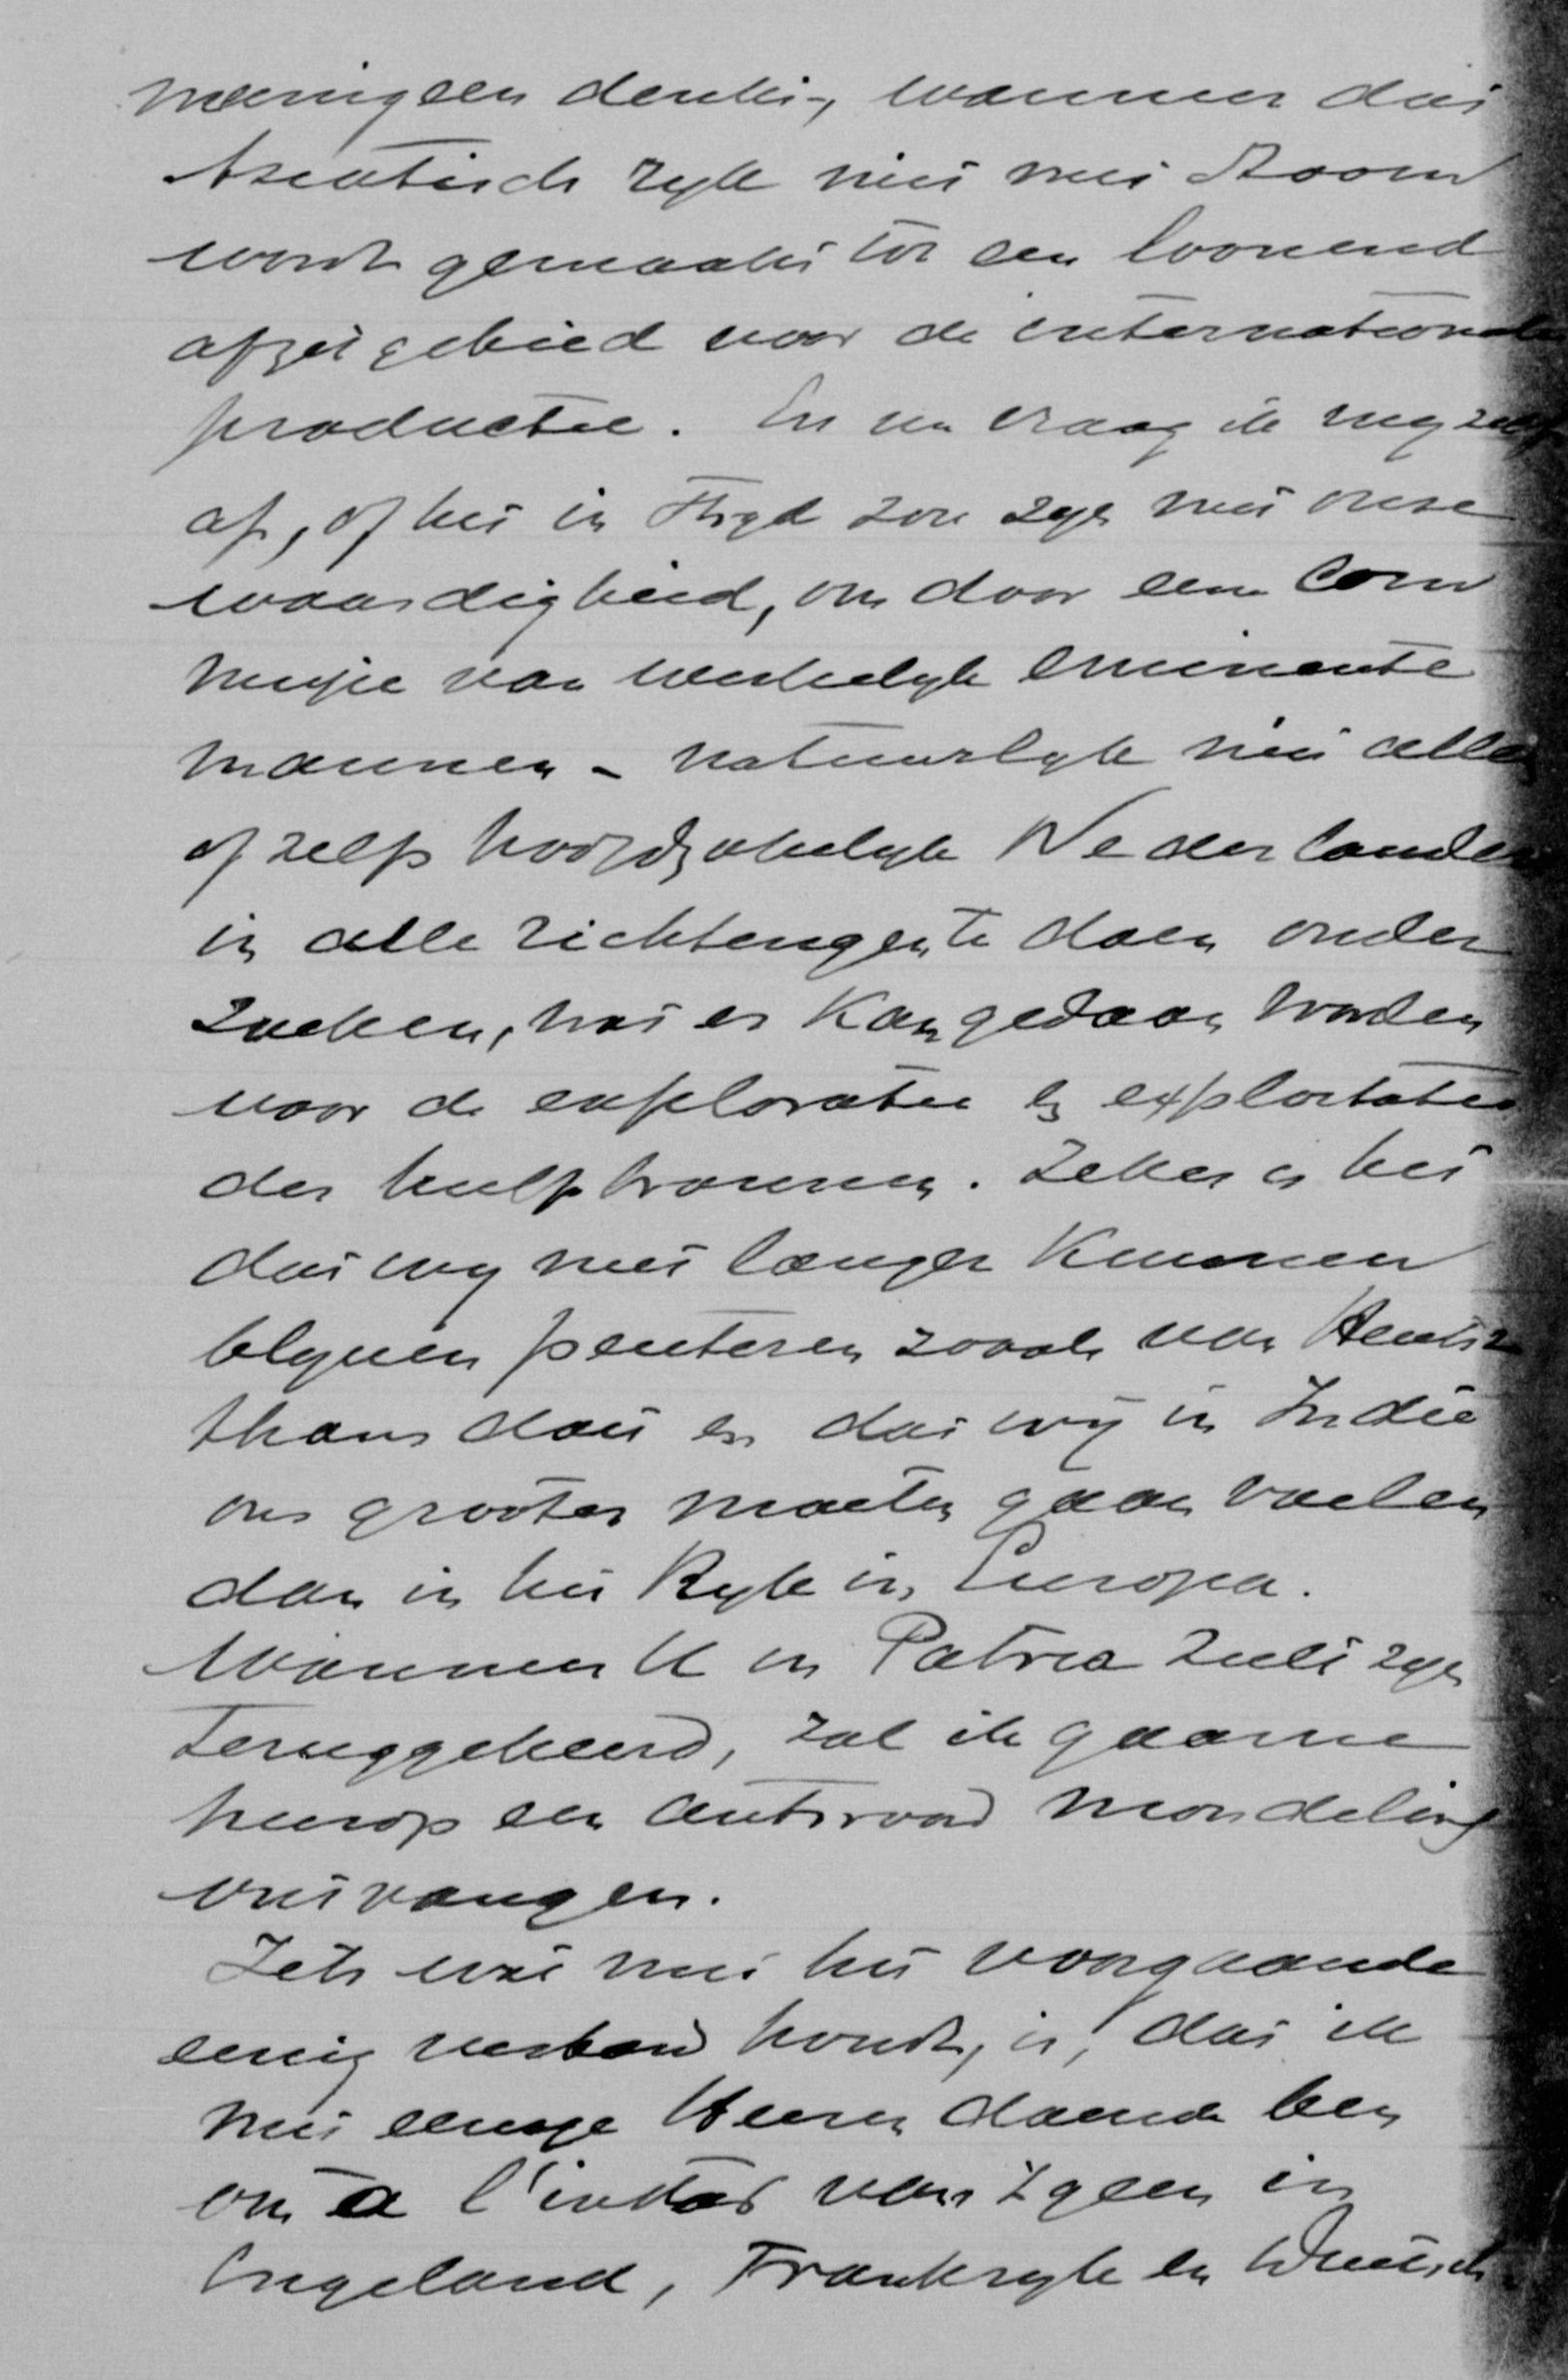 menigeen denkt, wanneer dat
Aziatisch ryk niet met stoom
wordt gemaakt tot een loonend
afzetgebied voor de internationale
productie. En nu vraag ik my zelf
af, of het in strijd zou zyn met onze
waardigheid, om door eene Com
missie van werkelyk eminente
mannen - natuurlyk niet alle
of zelfs hoofdzakelyk Nederlanders
in alle richtingen te doen onder
zoeken, wat er kan gedaan worden
voor de exploratie en exploitatie
der hulpbronnen. Zeker is het
dat wy niet langer kunnen
blyven peuteren zooals van Heutsz
thans doet en dat wij in Indië
ons grooter moeten gaan voelen
dan in het Ryk in Europa.
Wanneer U in Patria zult zyn
teruggekeerd, zal ik gaarne
hierop een antwoord mondeling
ontvangen.
Iets wat met het voorgaande
eenig verband houdt, is, dat ik
met eenige Heeren doende ben
om a l'instar van 't geen in
Engeland, Frankryk en Duitsch-